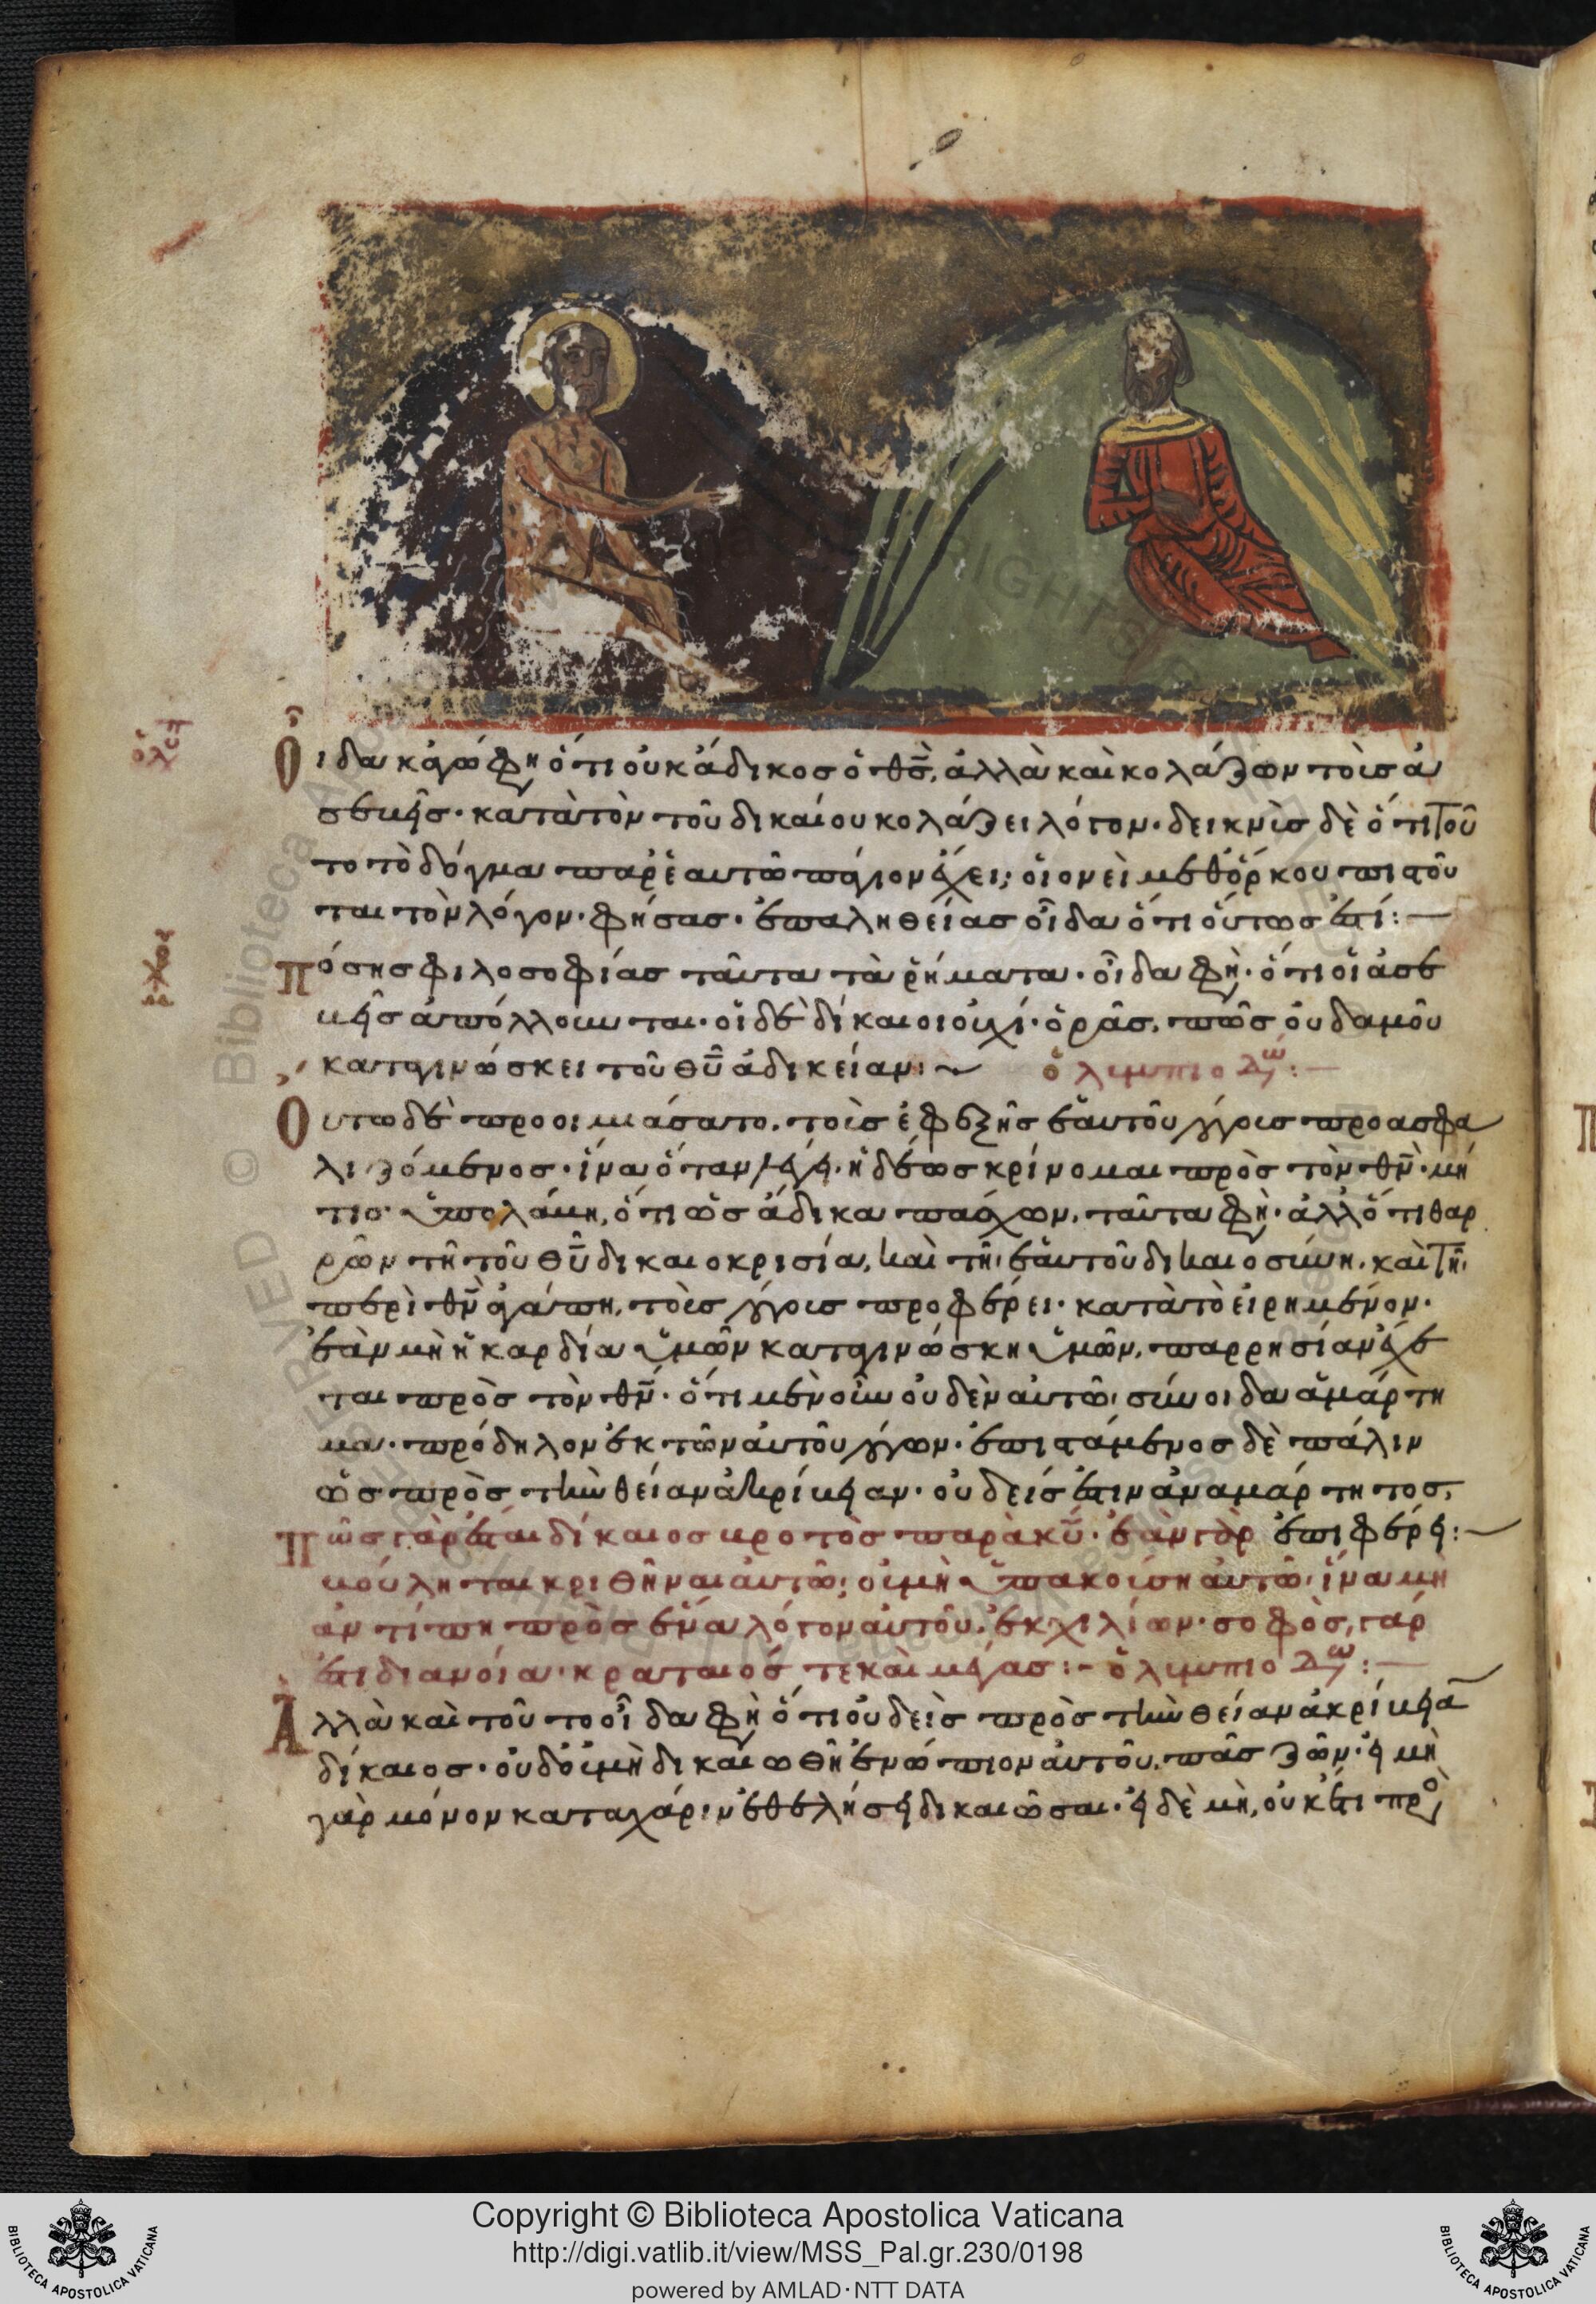 Οἶδα κἀγώ φη ὅτι οὐκ ἄδικος ὁ θς̅, ἀλλὰ καὶ κολάζων τοὶς ἀ
σεβεῖς· κατὰ τὸν τοῦ δικαίου κολάζει λόγον· δεικνὶσ δὲ ὅτι τοῦ
το τὸ δόγμα παρ' ἑαυτῶ πάγιον ἔχει; οἱονεὶ μεθ' ὅρκου πιστοῦ
ται τὸν λόγον· φήσας· ἐπ' ἀληθείας οἶδα ὅτι οὕτως ἐστί:
Πόσης φιλοσοφίας ταῦτα τὰ ρήματα· οἶδα φὴ· ὅτι οἱ ἀσε
βεῖς ἀπόλλοινται· οἱ δὲ δίκαιοι οὐχί· ὁρᾶς, πῶς οὐδαμοῦ
καταγινώσκει τοῦ θυ̅ ἀδικείαν:
ὀλιμπιοδω:
Οὕτω δὲ προοιμιάσατο· τοὶς ἐφεξῆς ἑαυτοῦ λόγοις προασφα
λιζόμενος· ἵνα ὅταν λέγει· ἡδέως κρίνομαι πρὸς τὸν θν̅· μή
τις ὑπολάβη, ὅτι ὡς ἄδικα πάσχων, ταῦτα φὴ· ἀλλ' ὅτι θαρ
ρῶν τῆ τοῦ θυ̅ δικαιοκρισία, καὶ τῆ ἑαυτοῦ δικαιοσύνη· καὶ τῆ
περὶ θν̅ ἀγάπη, τοὶς λόγοις προφέρει· κατὰ τὸ εἰρημένον·
ἐὰν μὴ ἡ καρδία ὑμῶν καταγινώσκη ὑμῶν, παρρησίαν ἔχε
ται πρὸς τὸν θν̅· ὅτι μὲν οὖν οὐδὲν αὐτῶ σύνοιδα ἁμάρτη
μα· πρόδηλον ἐκ τῶν αὐτοῦ λόγων· ἐπιστάμενος δὲ πάλιν
ὡς πρὸς τὴν θείαν ἀκρίβειαν· οὐδείς ἐστιν ἀναμάρτητος,
Πῶς γὰρ ἔσται δίκαιος βροτὸς παρὰ κυ̅· ἐὰν γὰρ ἐπιφέρει:
βούληται κριθῆναι αὐτῶ· οὐ μὴ ὑπακούση αὐτῶ· ἵνα μὴ
ἀντίπη πρὸς ἕνα λόγον αὐτοῦ· ἐκ χιλίων· σοφὸς, γάρ
ἐστι διανοία· κραταιός τε καὶ μέγας: ὀλιμπιοδω:
Ἀλλὰ καὶ τοῦτο οἶδα φὴ ὅτι οὐδεὶς πρὸς τὴν θείαν ἀκρίβεια̅
δίκαιος· οὐδ' οὐ μὴ δικαιωθῆ ἐνώπιον αὐτοῦ, πᾶς ζῶν· εἰ μὴ
γὰρ μόνον κατὰ χάριν ἐθελήσει δικαιῶσαι· εἰ δὲ μὴ, οὐκ ἔστι πρὸ
Copyright © Biblioteca Apostolica Vaticana
http://digi.vatlib.it/view/MSS_Pal.gr.230/0198
powered by AMLAD·NTT DATA
BIBLIOTECA APOSTOLICA VATICANA
BIBLIOTECA APOSTOLICA VATICANA